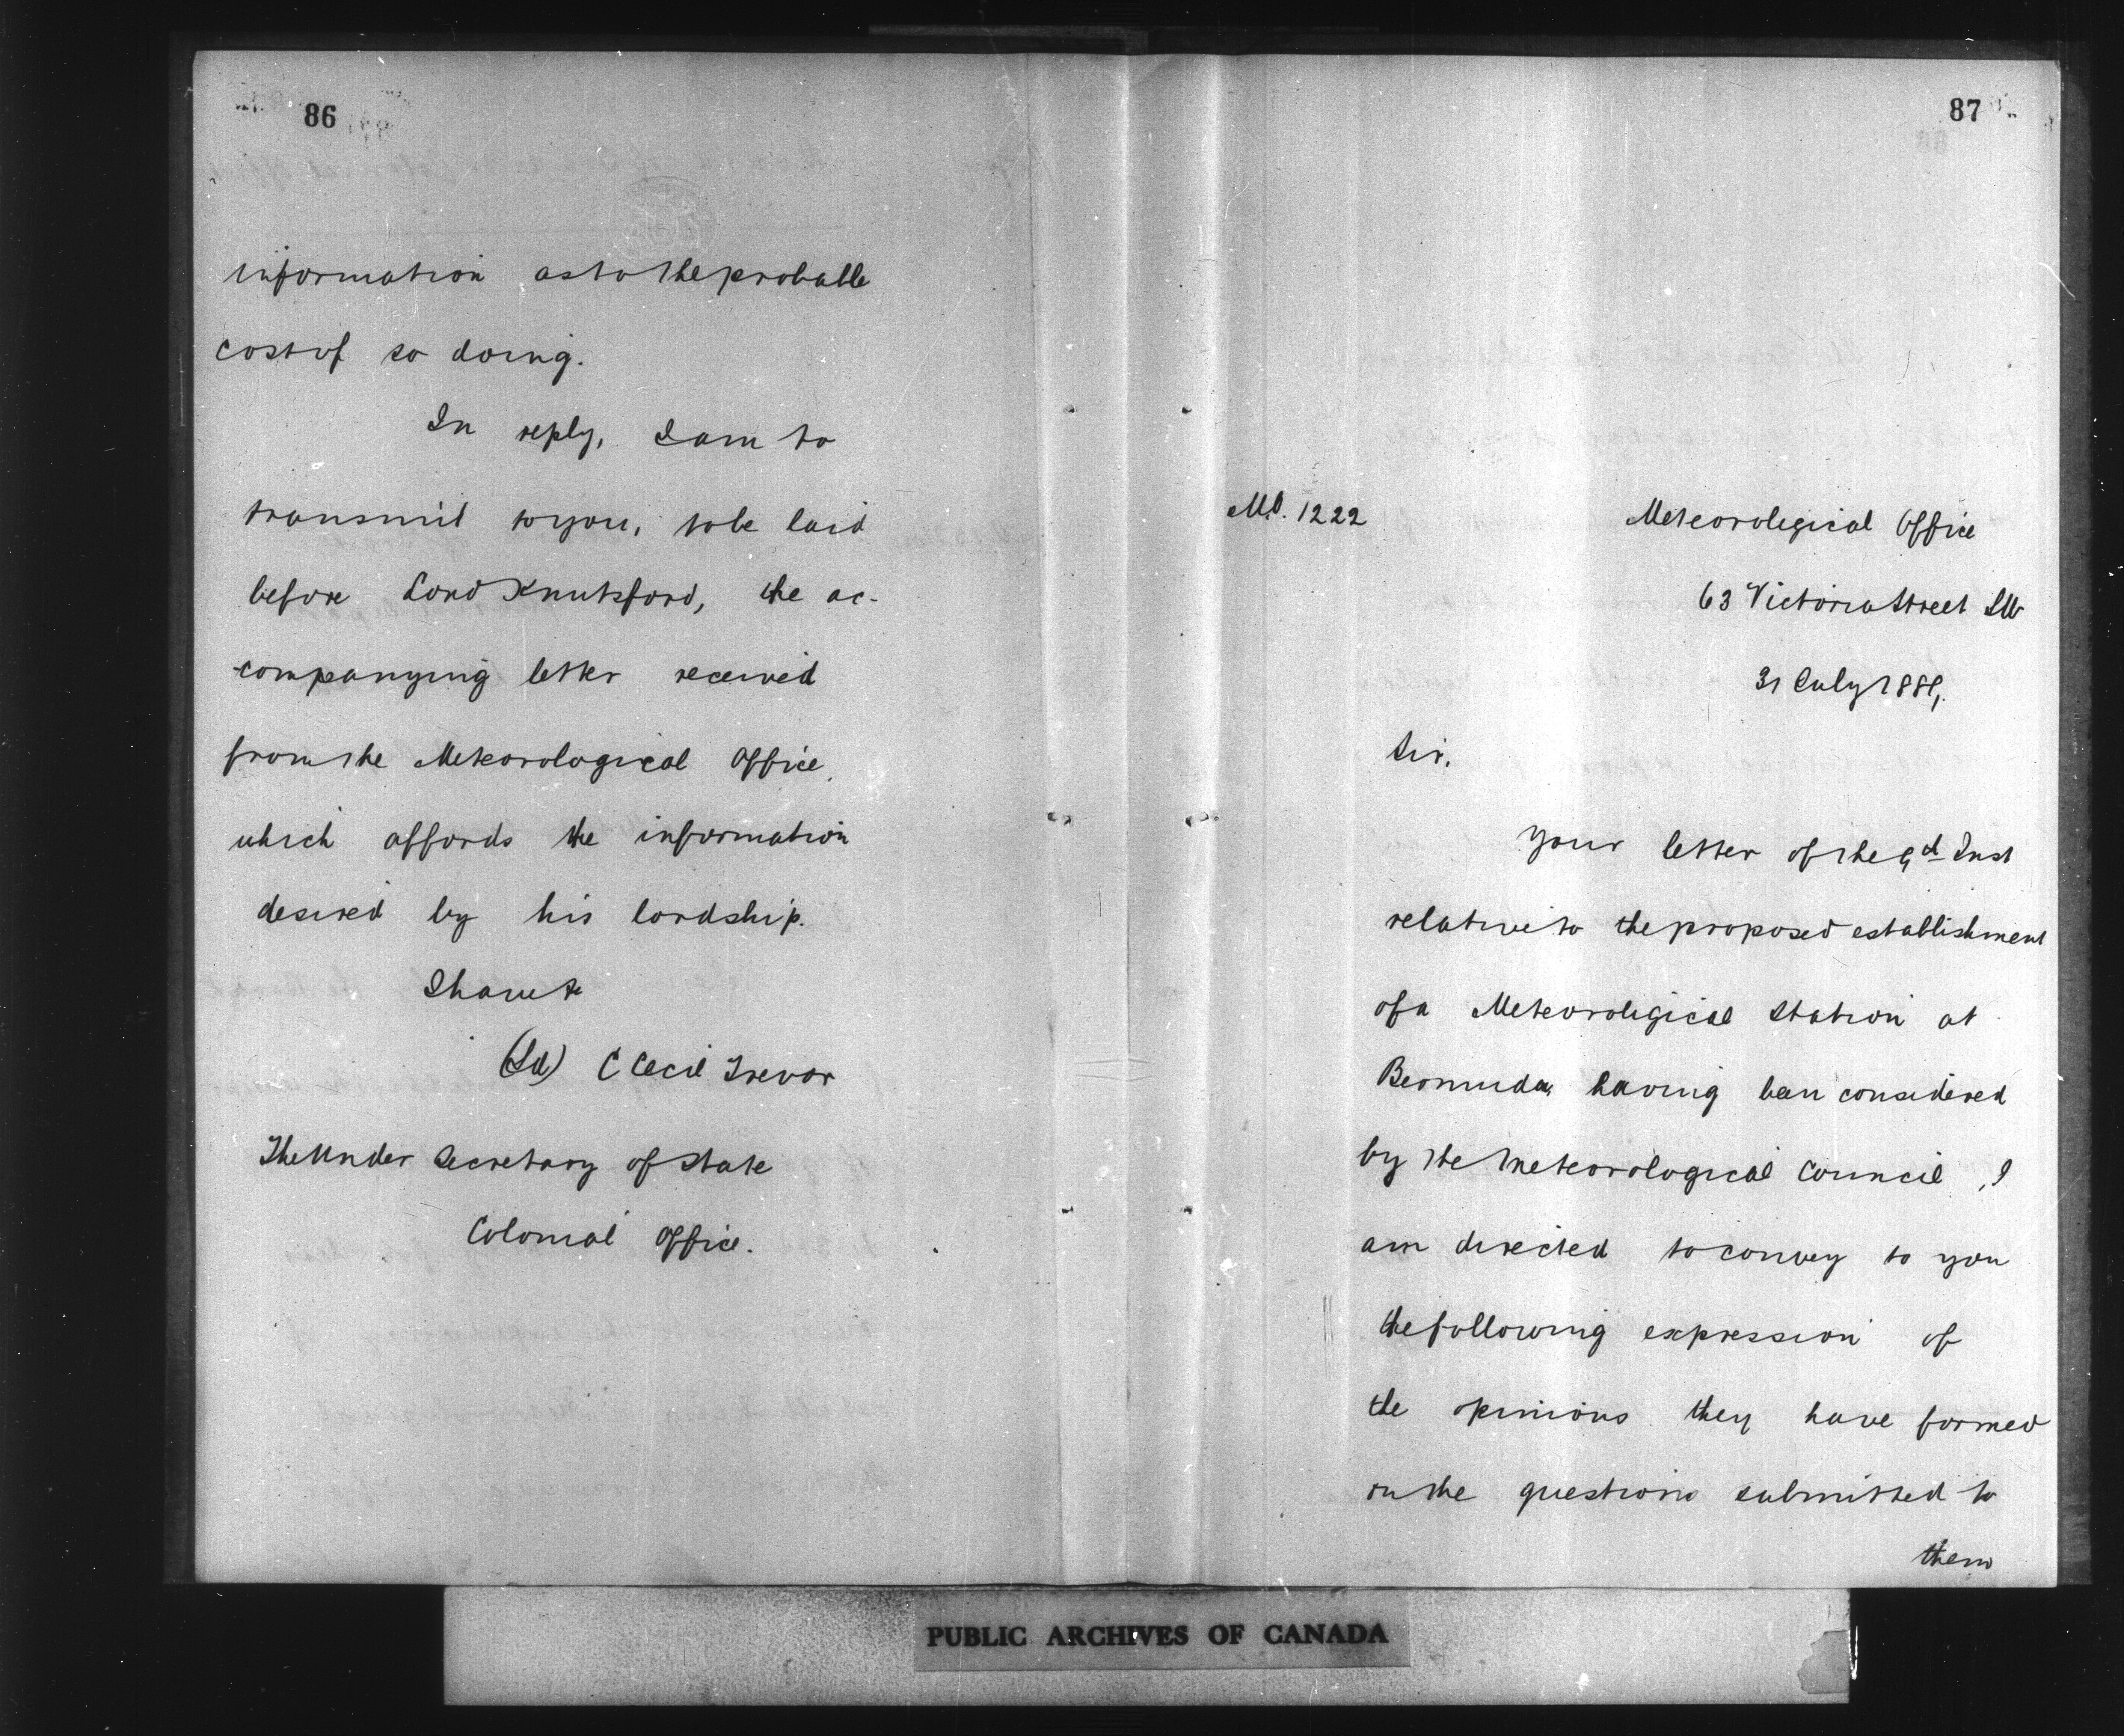 86
information as to the probable
cost of so doing.
In reply, I am to
transmit to you, to be laid
before Lord Knutsford, the ac-
companying letter received
from the Meteorological Office,
which affords the information
desired by his lordship.
I have &c
(Sd) C Cecil Trevor
The Under Secretary of State
Colonial Office.
87
M.O. 1222
Meteorological Office
63 Victoria Street SW
31 July 1889,
Sir,
Your letter of the Inst
relative to the proposed establishment
of a Meteorological Station at
Bermuda, having been considered
by the Meteorological Council, I
am directed to convey to you
the following expression of
the opinions they have formed
on the questions submitted to
them
PUBLIC ARCHIVES OF CANADA